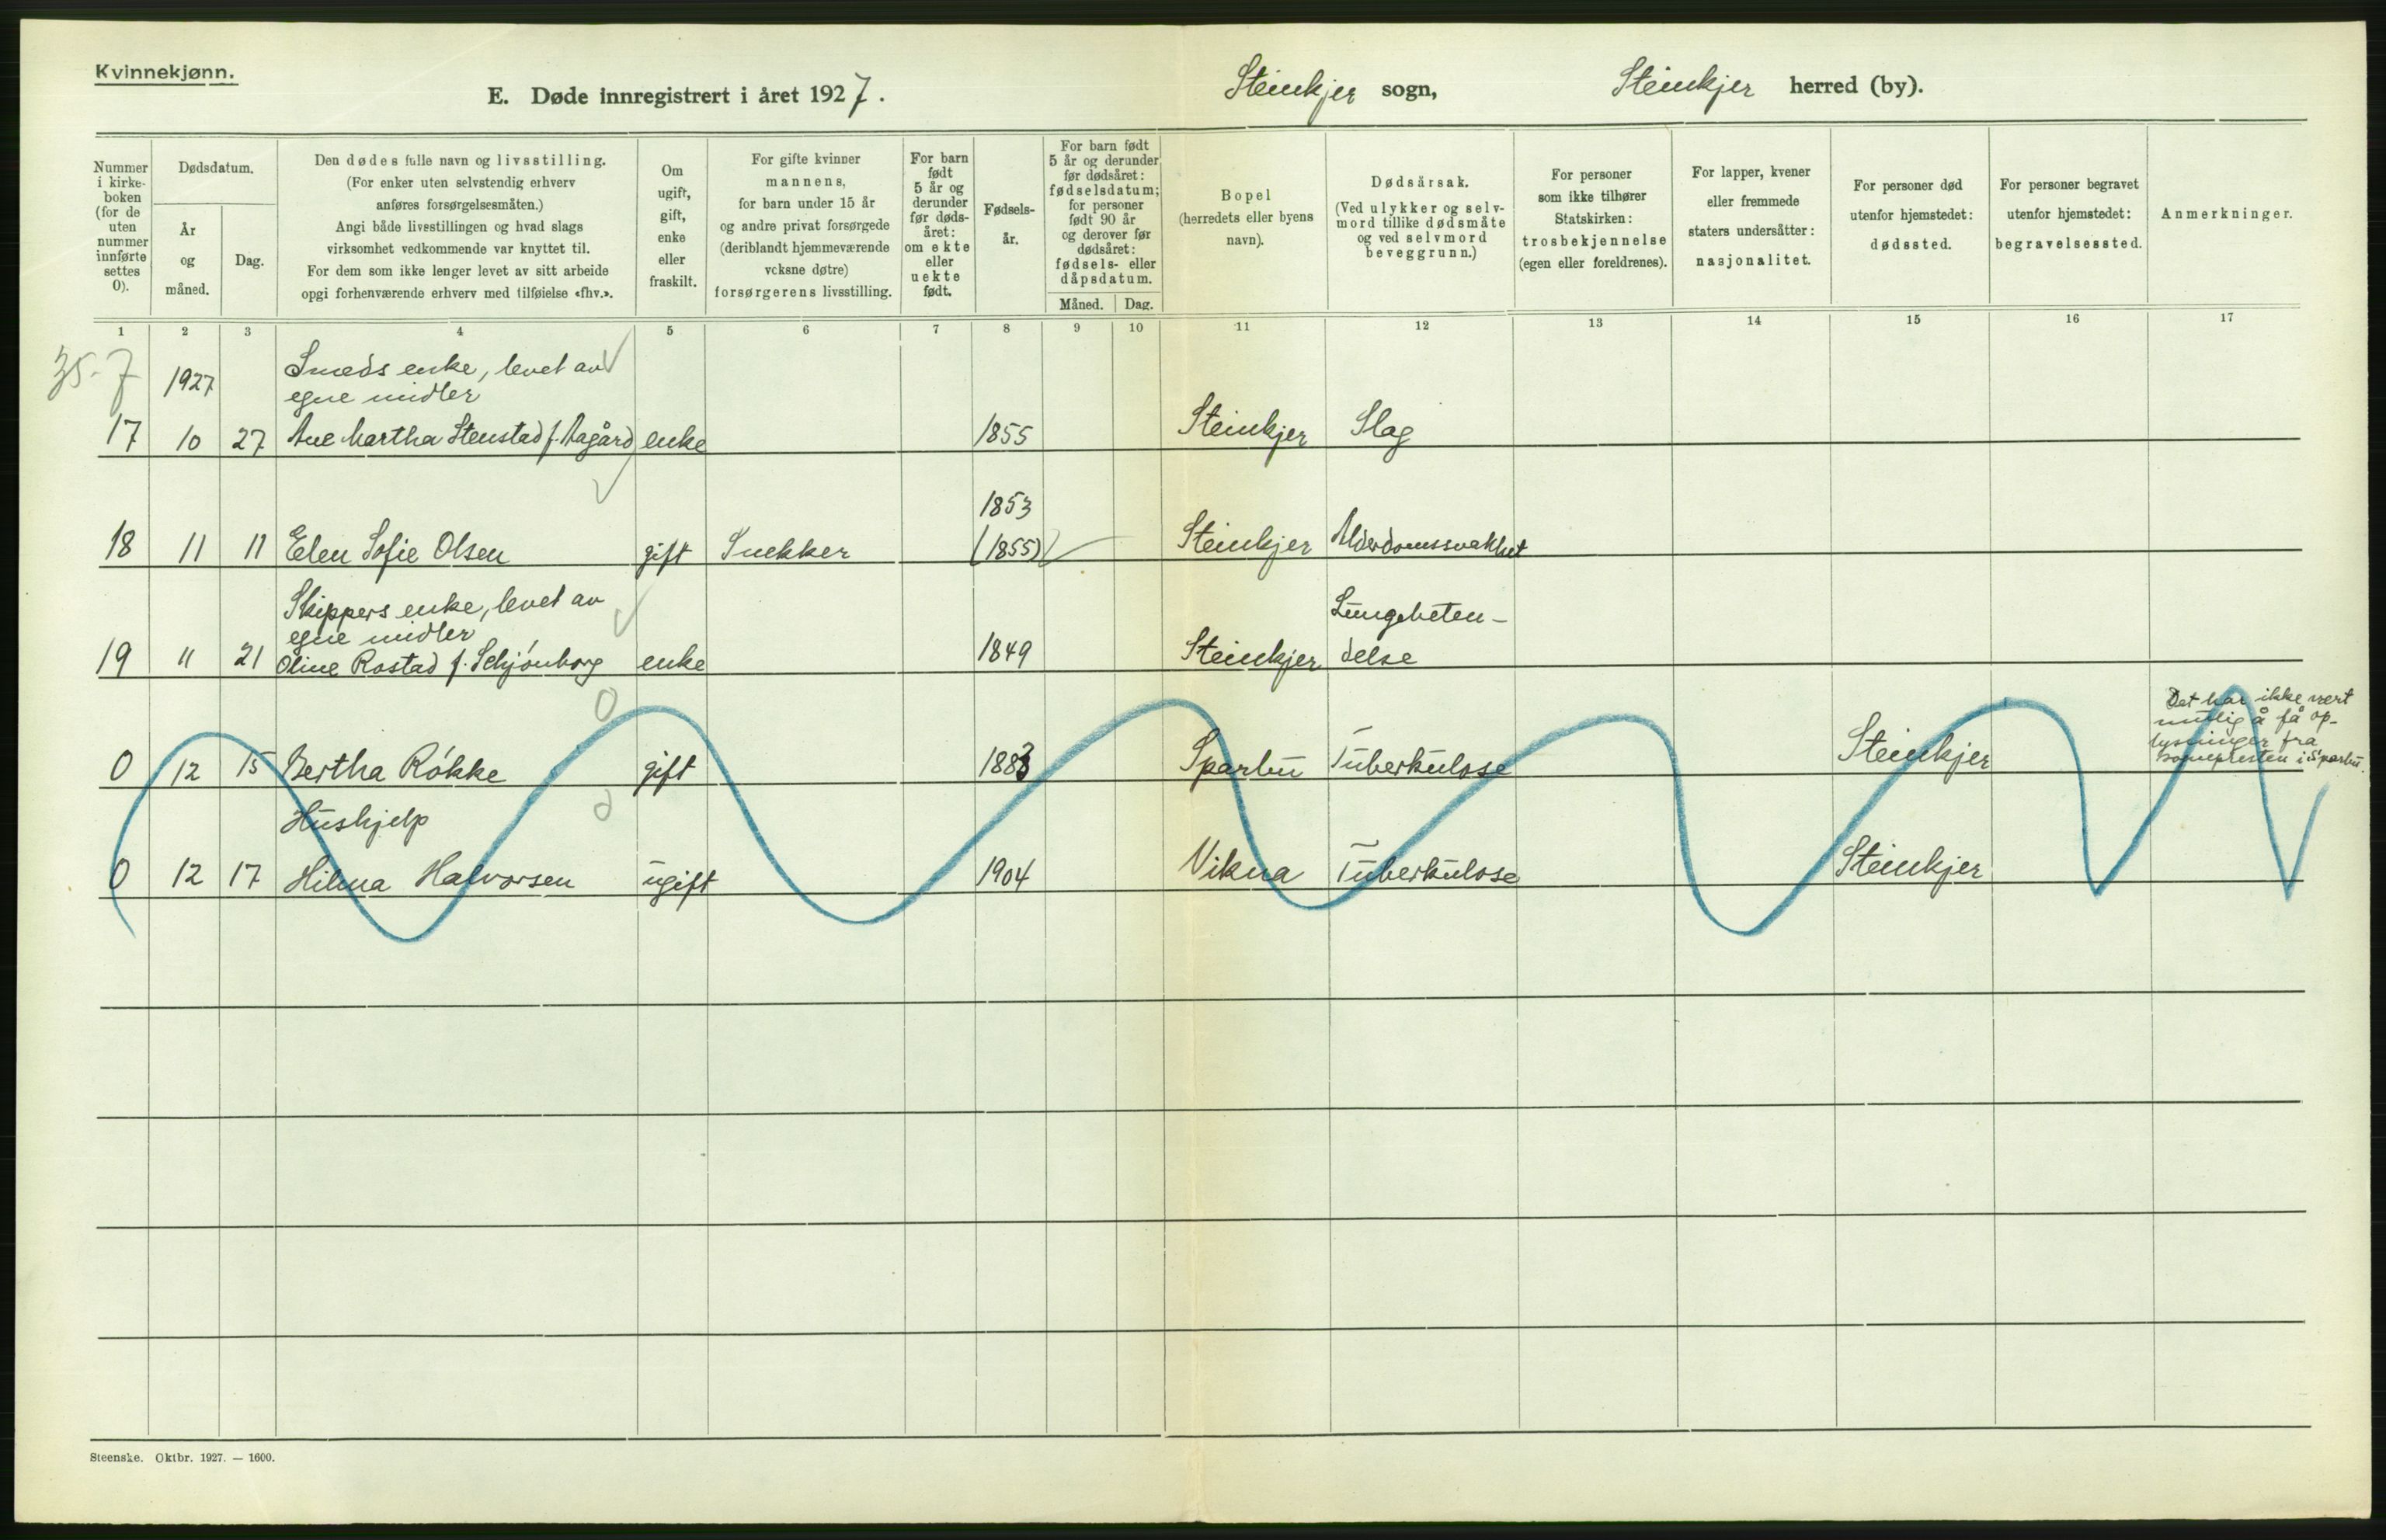 Kvinnekjønn.
E. Døde innregistrert i året 1927.
Steinkjer sogn,
Steinkjer herred (by).
Nummer
i kirke-
boken
(for de
uten
nummer
innførte
settes
0).
Dødsdatum.
År
og
måned.
Dag.
Den dødes fulle navn og livsstilling.
(For enker uten selvstendig erhverv
anføres forsørgelsesmåten.)
Angi både livsstillingen og hvad slags
virksomhet vedkommende var knyttet til.
For dem som ikke lenger levet av sitt arbeide
opgi forhenværende erhverv med tilføielse «fhv.».
Om
ugift,
gift,
enke
eller
fraskilt.
For gifte kvinner
mannens,
for barn under 15 år
og andre privat forsørgede
(deriblandt hjemmeværende
voksne døtre)
forsørgerens livsstilling.
For barn
født
5 år og
derunder
før døds-
året:
om ekte
eller
uekte
født.
Fødsels-
år.
For barn født
5 år og derunder
før dødsåret:
fødselsdatum;
for personer
født 90 år
og derover før
dødsåret:
fødsels- eller
dåpsdatum.
Måned. Dag.
Bopel
(herredets eller byens
navn).
Dødsårsak.
(Ved ulykker og selv-
mord tillike dødsmåte
og ved selvmord
beveggrunn.)
For personer
som ikke tilhører
Statskirken:
trosbekjennelse
(egen eller foreldrenes).
For lapper, kvener
eller fremmede
staters undersåtter:
nasjonalitet.
For personer død
utenfor hjemstedet:
dødssted.
For personer begravet
utenfor hjemstedet:
begravelsessted.
Anmerkninger.
1 2 3 4 5 6 7 8 9 10 11 12 13 14 15 16 17
35-7
1927
Smeds enke, levet av
egne midler
17 10 27 Ane Martha Stenstad f. Aagård enke 1855 Steinkjer Slag
1853
18 11 11 Elen Sofie Olsen gift Snekker (1855) Steinkjer Alderdomssvakhet
Skippers enke, levet av
egne midler
Lungebeten-
19 11 21 Oline Rostad f. Schjønborg enke 1849 Steinkjer delse
0
0 12 15 Bertha Røkke gift 1883 Sparbu Tuberkulose Steinkjer
Det har ikke vært
mulig å få op-
lysninger fra
sognepresten i Sparbu.
Hushjelp
0 12 17 Hilma Halvorsen ugift 1904 Vikna Tuberkulose Steinkjer
Steenske. Oktbr. 1927. — 1600.